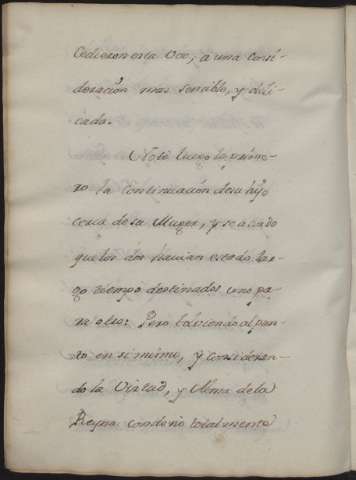 Cedieron esta Voz, a una consi-
deracion mas sensible, y deli-
cada.
Notó luego lo prime-
ro la continuación de su hijo
cerca de su Muger, y
que los dos havian estado lar-
go tiempo destinados uno pa-
ra otro: Pero bolviendo al pun-
to en si mismo, y consideran-
do la Virtud, y Alma de la
Reyna condenó totalmente